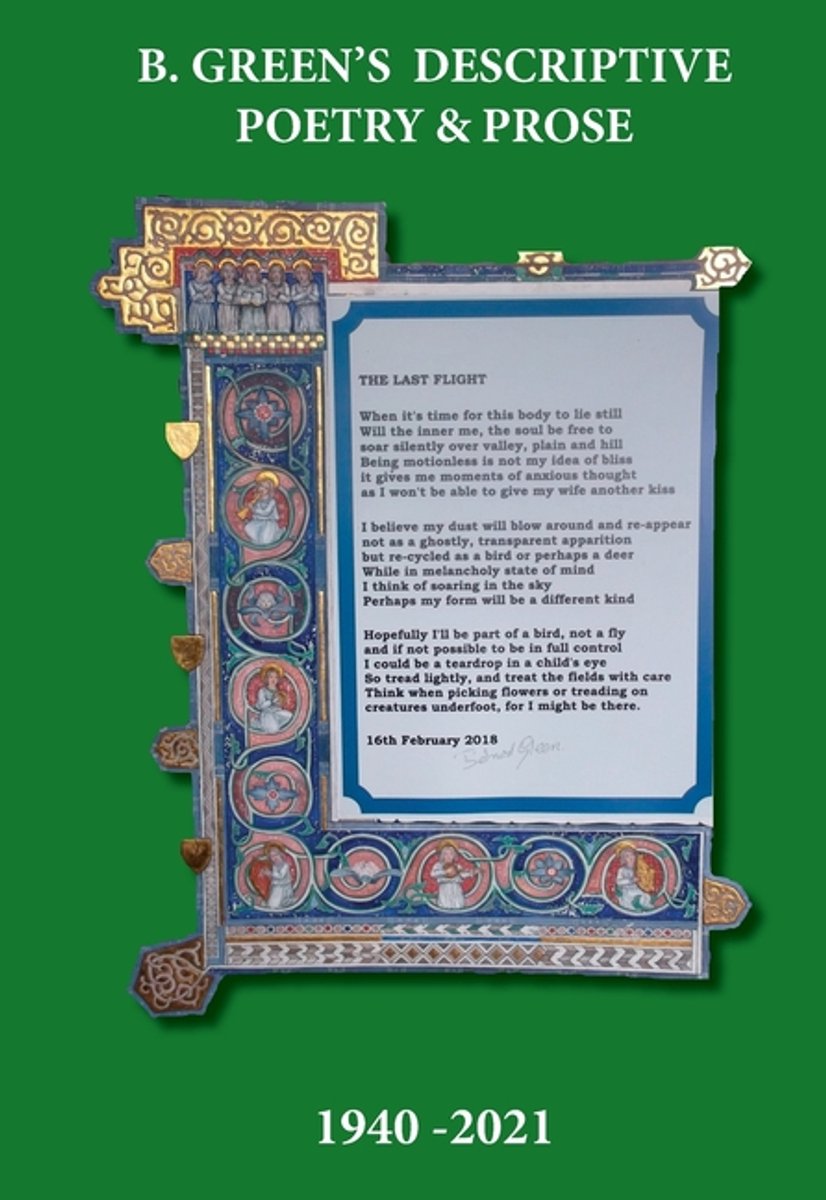 B. GREEN'S DESCRIPTIVE
POETRY & PROSE
THE LAST FLIGHT
When it's time for this body to lie still
Will the inner me, the soul be free to
soar silently over valley, plain and hill
Being motionless is not my idea of bliss
it gives me moments of anxious thought
as I won't be able to give my wife another kiss
I believe my dust will blow around and re-appear
not as a ghostly, transparent apparition
but re-cycled as a bird or perhaps a deer
While in melancholy state of mind
I think of soaring in the sky
Perhaps my form will be a different kind
Hopefully I'll be part of a bird, not a fly
and if not possible to be in full control
I could be a teardrop in a child's eye
So tread lightly, and treat the fields with care
Think when picking flowers or treading on
creatures underfoot, for I might be there.
16th February 2018
Green
1940 -2021